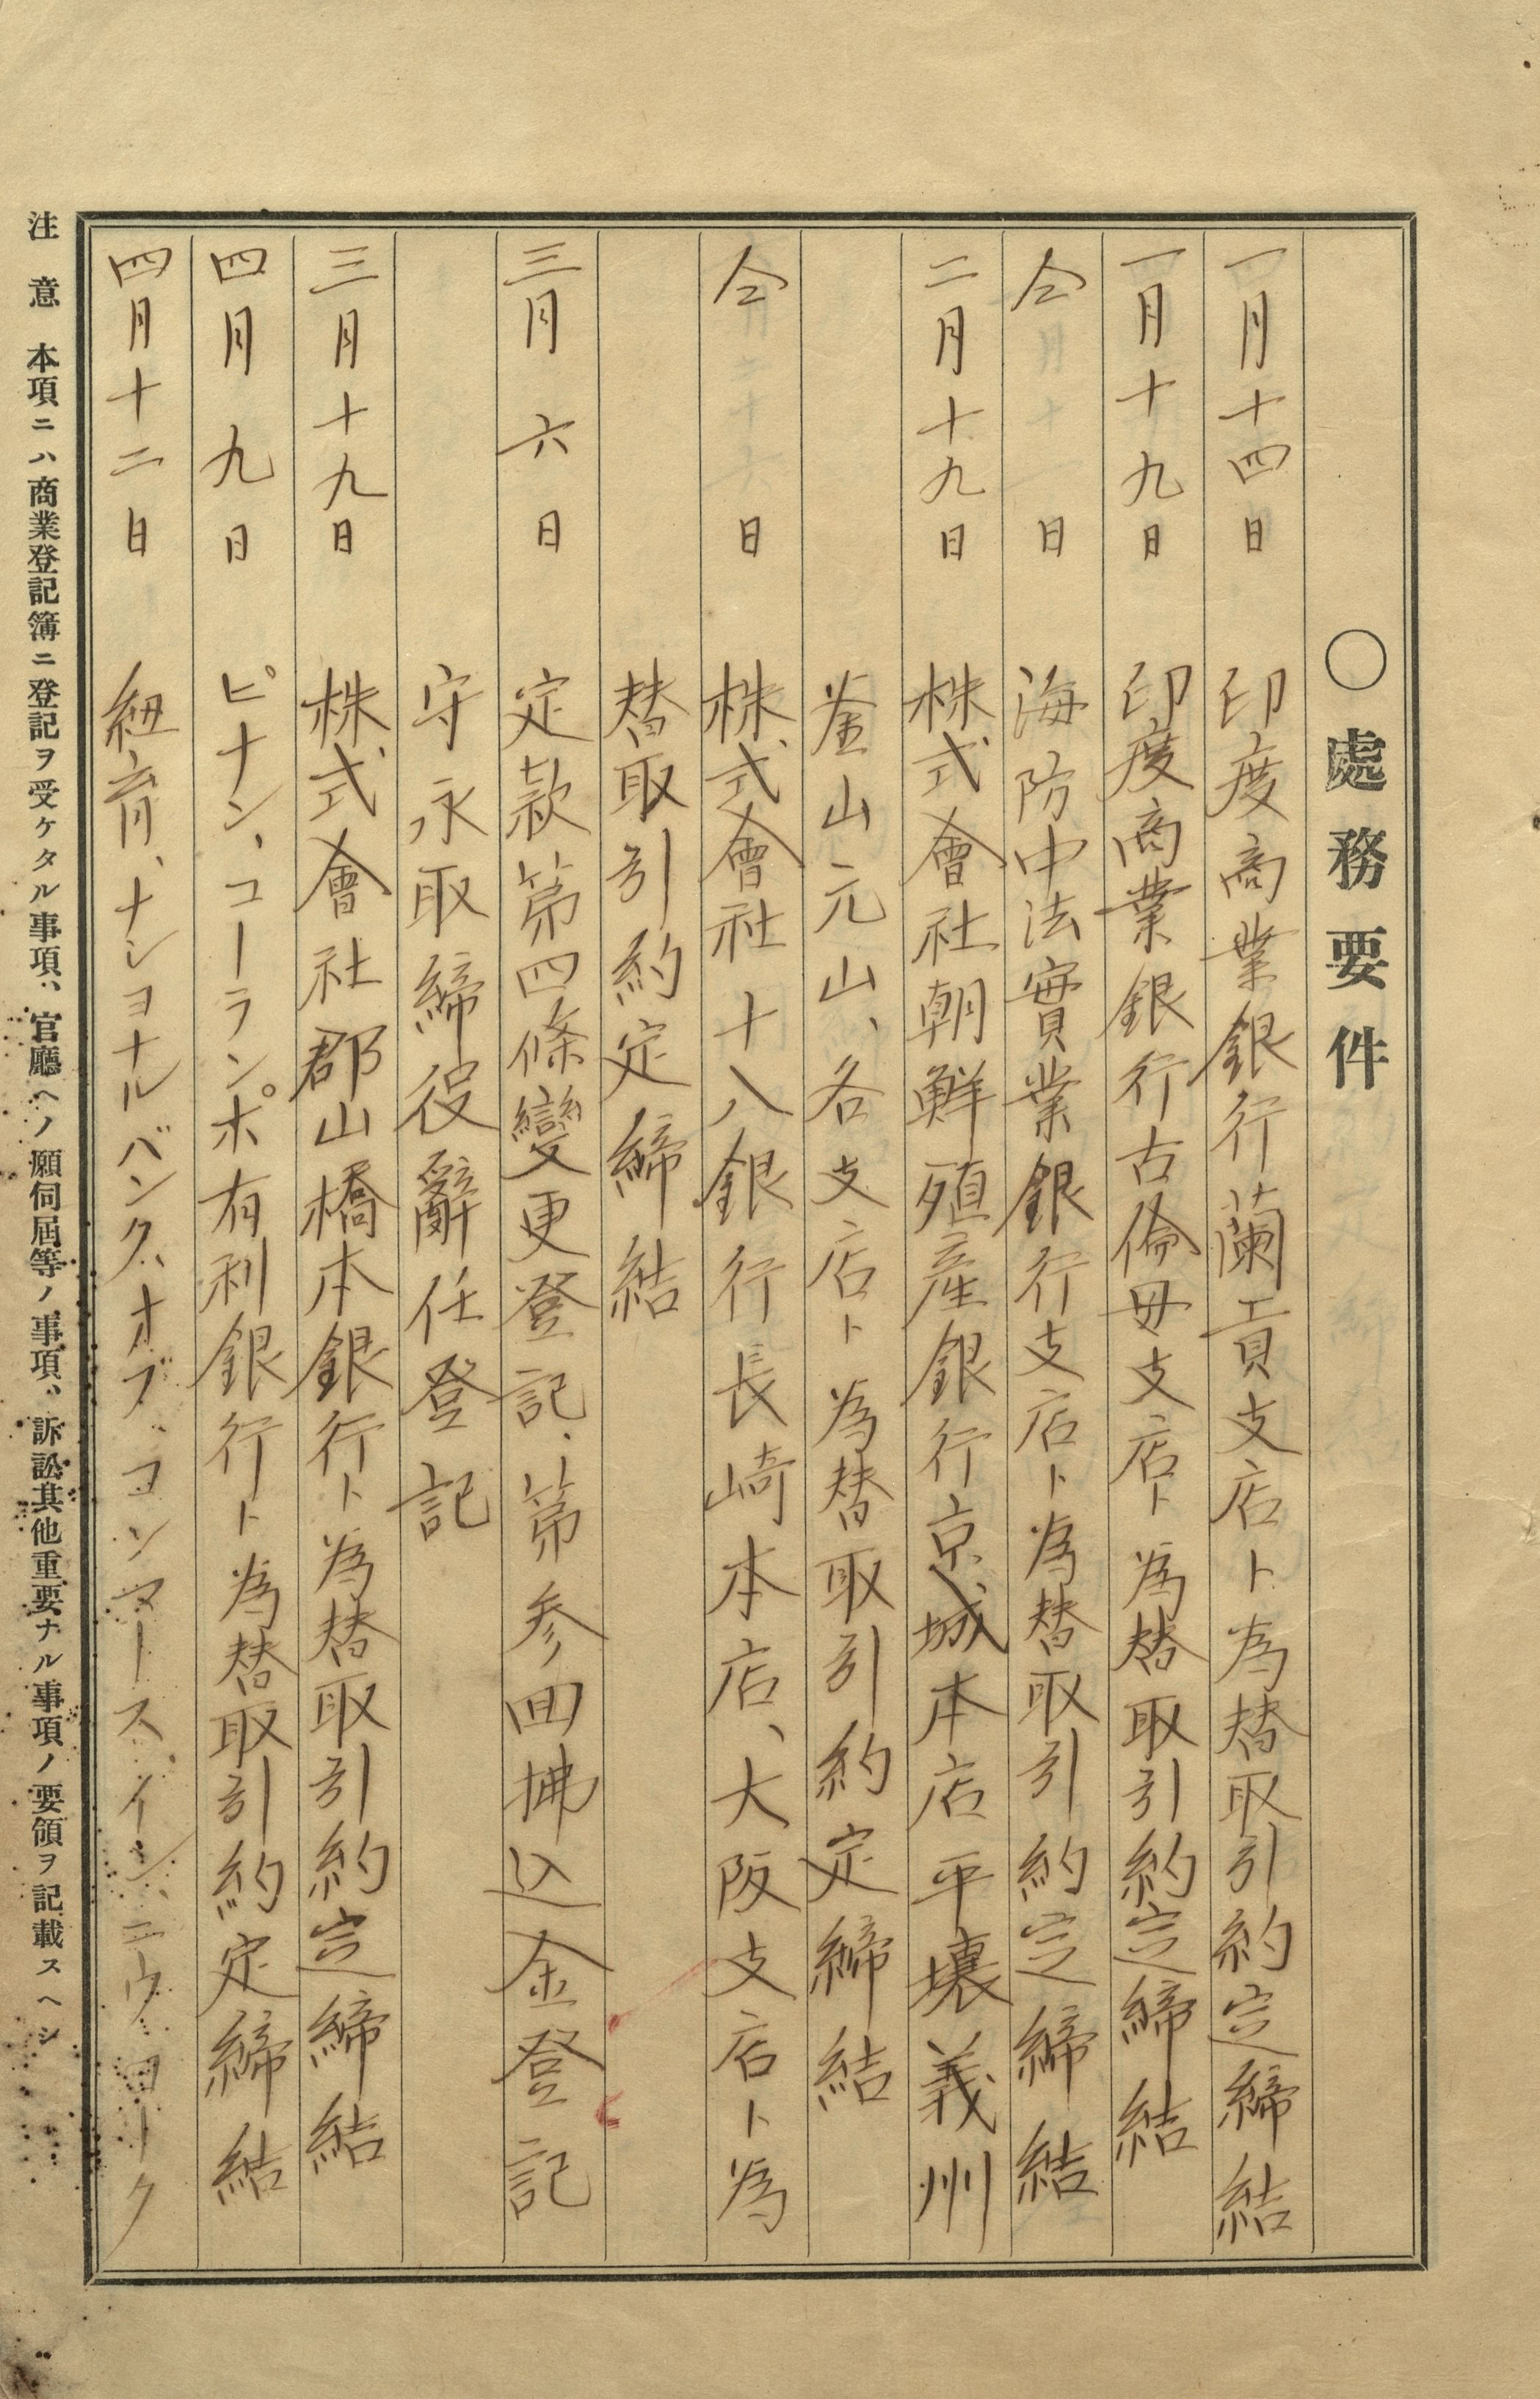 〇處務要件
一月十四日 印度商業銀行蘭貢支店ト為替取引約定締結
一月十九日 印度商業銀行古倫母支店ト為替取引約定締結
仝日 海防中法實業銀行支店ト為替取引約定締結
二月十九日 株式會社朝鮮殖産銀行京城本店平壤義州
釜山元山、各支店ト為替取引約定締結
仝日 株式會社十八銀行長崎本店、大阪支店ト為
替取引約定締結
三月六日 定款第四條變更登記、第参回拂込金登記
守永取締役辭任登記
三月十九日 株式會社郡山橋本銀行ト為替取引約定締結
四月九日 ピナン、コーランポ有利銀行ト為替取引約定締結
四月十二日 紐育、ナショナルバンク、オブ、コンマース、イン、ニウヨーク
注意 本項ニハ商業登記簿ニ登記ヲ受ケタル事項、官廳ヘノ願伺屆等ノ事項、訴訟其他重要ナル事項ノ要領ヲ記載スヘシ